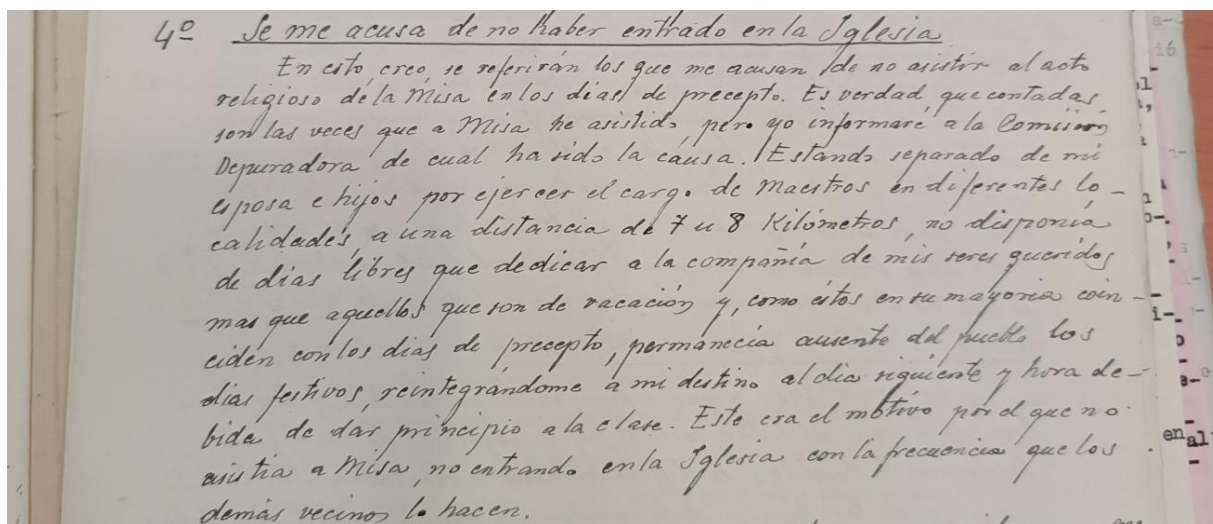 4º Se me acusa de no haber entrado en la Iglesia
En esto, creo, se referirán los que me acusan, de no asistir al acto
religioso de la Misa en los dias de precepto. Es verdad, que contadas
son las veces que a Misa he asistido pero yo informaré a la Comisión
Depuradora de cual ha sido la causa. Estando separado de mi
esposa e hijos por ejercer el cargo de Maestros en diferentes lo-
calidades, a una distancia de 7 u 8 Kilómetros, no disponia
de dias libres que dedicar a la compañia de mis seres queridos
mas que aquellos que son de vacación y, como éstos en su mayoria coin-
ciden con los dias de precepto, permanecia ausente del pueblo los
dias festivos, reintegrándome a mi destino al dia siguiente y hora de-
bida de dar principio a la clase. Este era el motivo por el que no
asistia a Misa, no entrando en la Iglesia con la frecuencia que los
demás vecinos lo hacen.
a-
16
en
al